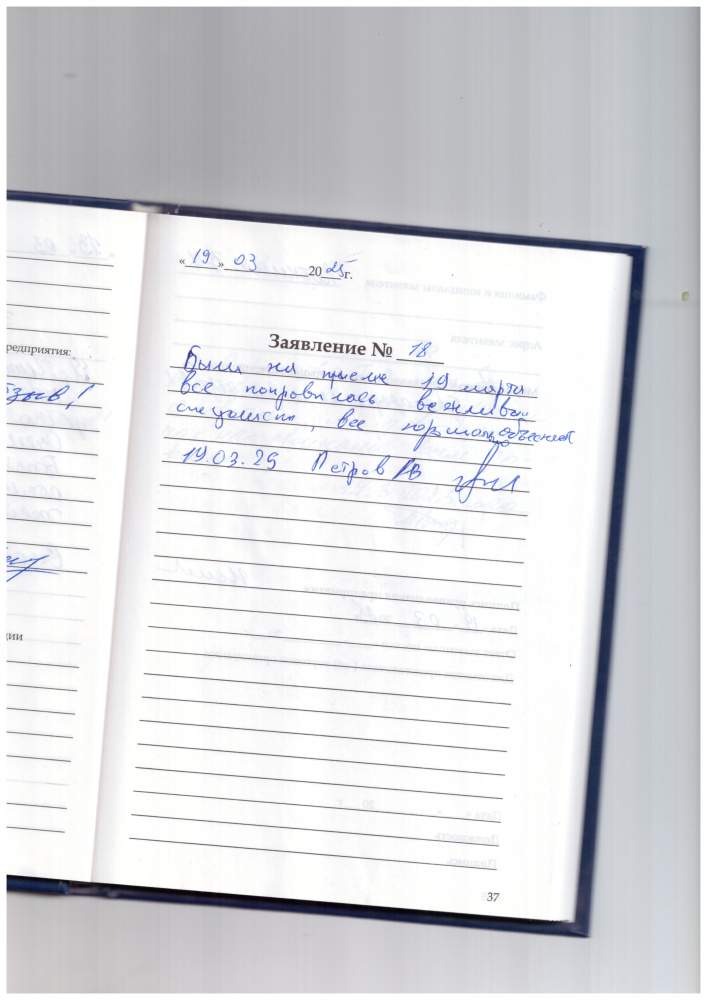 редприятия:
ции
« 19 » 03 20 25 г.
Заявление № 18
Были на приеме 19 марта
все понравилось вежливый
специалист, все нормально объясняет
19.03.25 Петров РВ
37